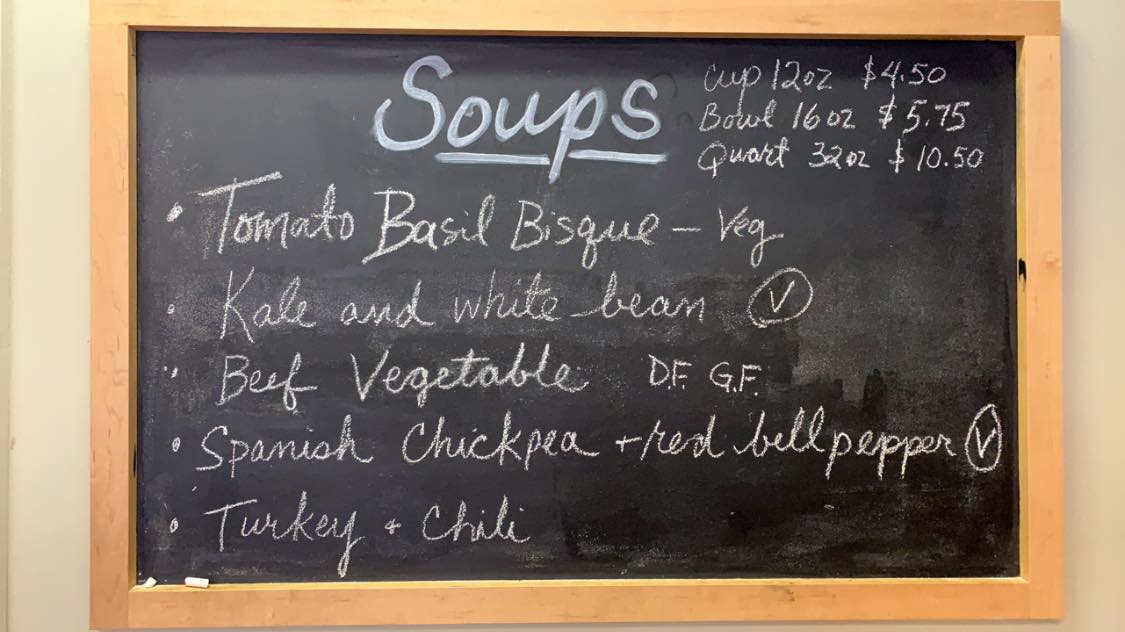 Soups
Cup 12oz $4.50
Bowl 16oz $5.75
Quart 32oz $10.50
• Tomato Basil Bisque – Veg
• Kale and white bean Ⓥ
• Beef Vegetable D.F. G.F.
• Spanish Chickpea + red bell pepper Ⓥ
• Turkey + Chili